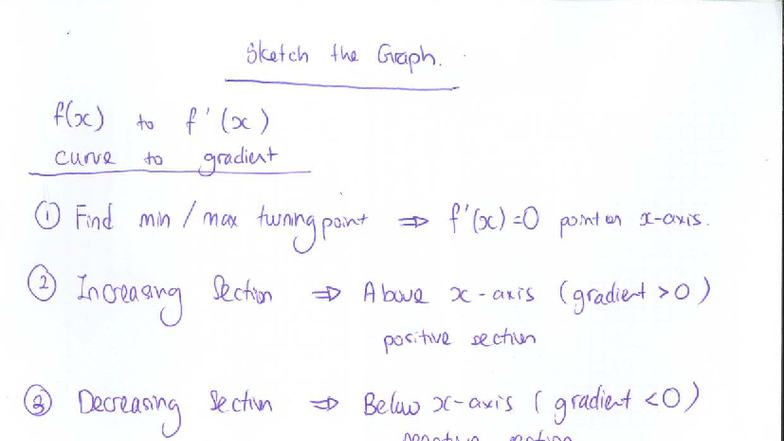 Sketch the Graph.
f(x) to f'(x)
curve to gradient
① Find min / max turning point ⇒ f'(x)=0 point on x-axis.
② Increasing Section ⇒ Above x-axis (gradient >0)
positive section
③ Decreasing Section ⇒ Below x-axis (gradient <0)
negative section